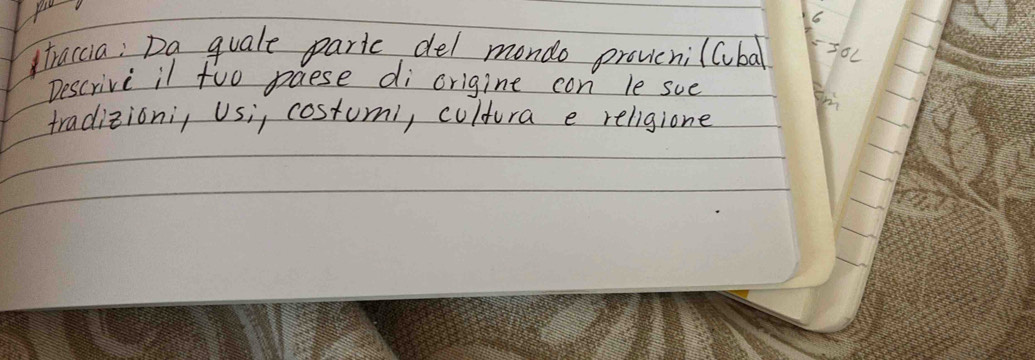 traccia: Da quale parte del mondo provieni (Cuba)
Descrivi il tuo paese di origine con le sue
tradizioni, usi, costumi, cultura e religione